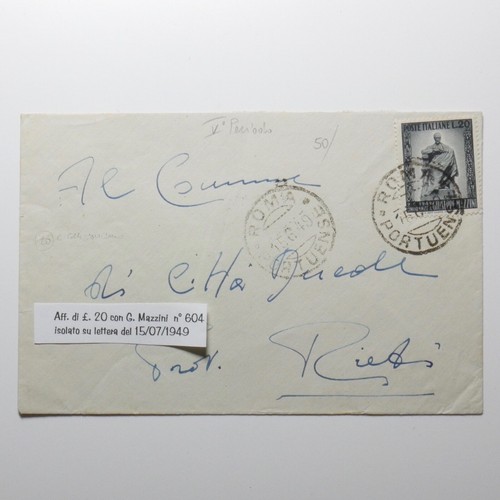 V° Periodo
50/
POSTE ITALIANE L.20
ROMA
PORTUENSE
ROMA
PORTUENSE
Al Comune
di Città Ducale
Aff. di £. 20 con G. Mazzini n° 604
isolato su lettera del 15/07/1949
Prov. Rieti